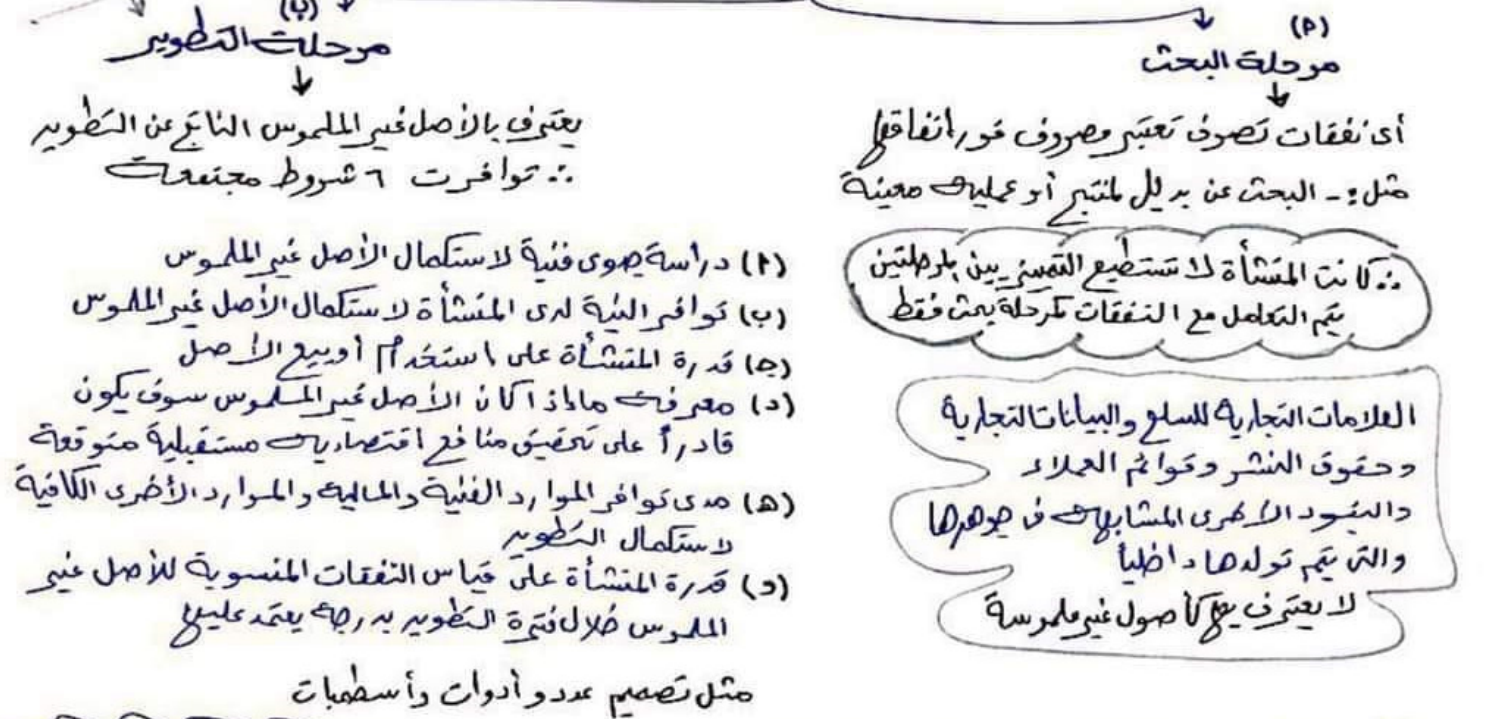 (أ)
مرحلة البحث
أى نفقات تصرف تعتبر مصروف فور إنفاقها
مثل :- البحث عن بديل لمنتج أو عملية معينة
∵ كانت المنشأة لا تستطيع التمييز بين المرحلتين
يتم التعامل مع النفقات كمرحلة بحث فقط
العلامات التجارية للسلع والبيانات التجارية
وحقوق النشر وقوائم العملاء
والبنود الأخرى المشابهة فى جوهرها
والتى يتم تولدها داخلياً
لا يعترف بها كأصول غير ملموسة
(ب)
مرحلة التطوير
يعترف بالأصل غير الملموس الناتج عن التطوير
∴ توافرت ٦ شروط مجتمعة
(أ) دراسة جدوى فنية لاستكمال الأصل غير الملموس
(ب) توافر النية لدى المنشأة لاستكمال الأصل غير الملموس
(ج) قدرة المنشأة على استخدام أو بيع الأصل
(د) معرفة ما إذا كان الأصل غير الملموس سوف يكون
قادراً على تحقيق منافع اقتصادية مستقبلية متوقعة
(ه) مدى توافر الموارد الفنية والمالية والموارد الأخرى الكافية
لاستكمال التطوير
(و) قدرة المنشأة على قياس النفقات المنسوبة للأصل غير
الملموس خلال فترة التطوير بدرجة يعتمد عليها
مثل تصميم عدد وأدوات وأسطمبات